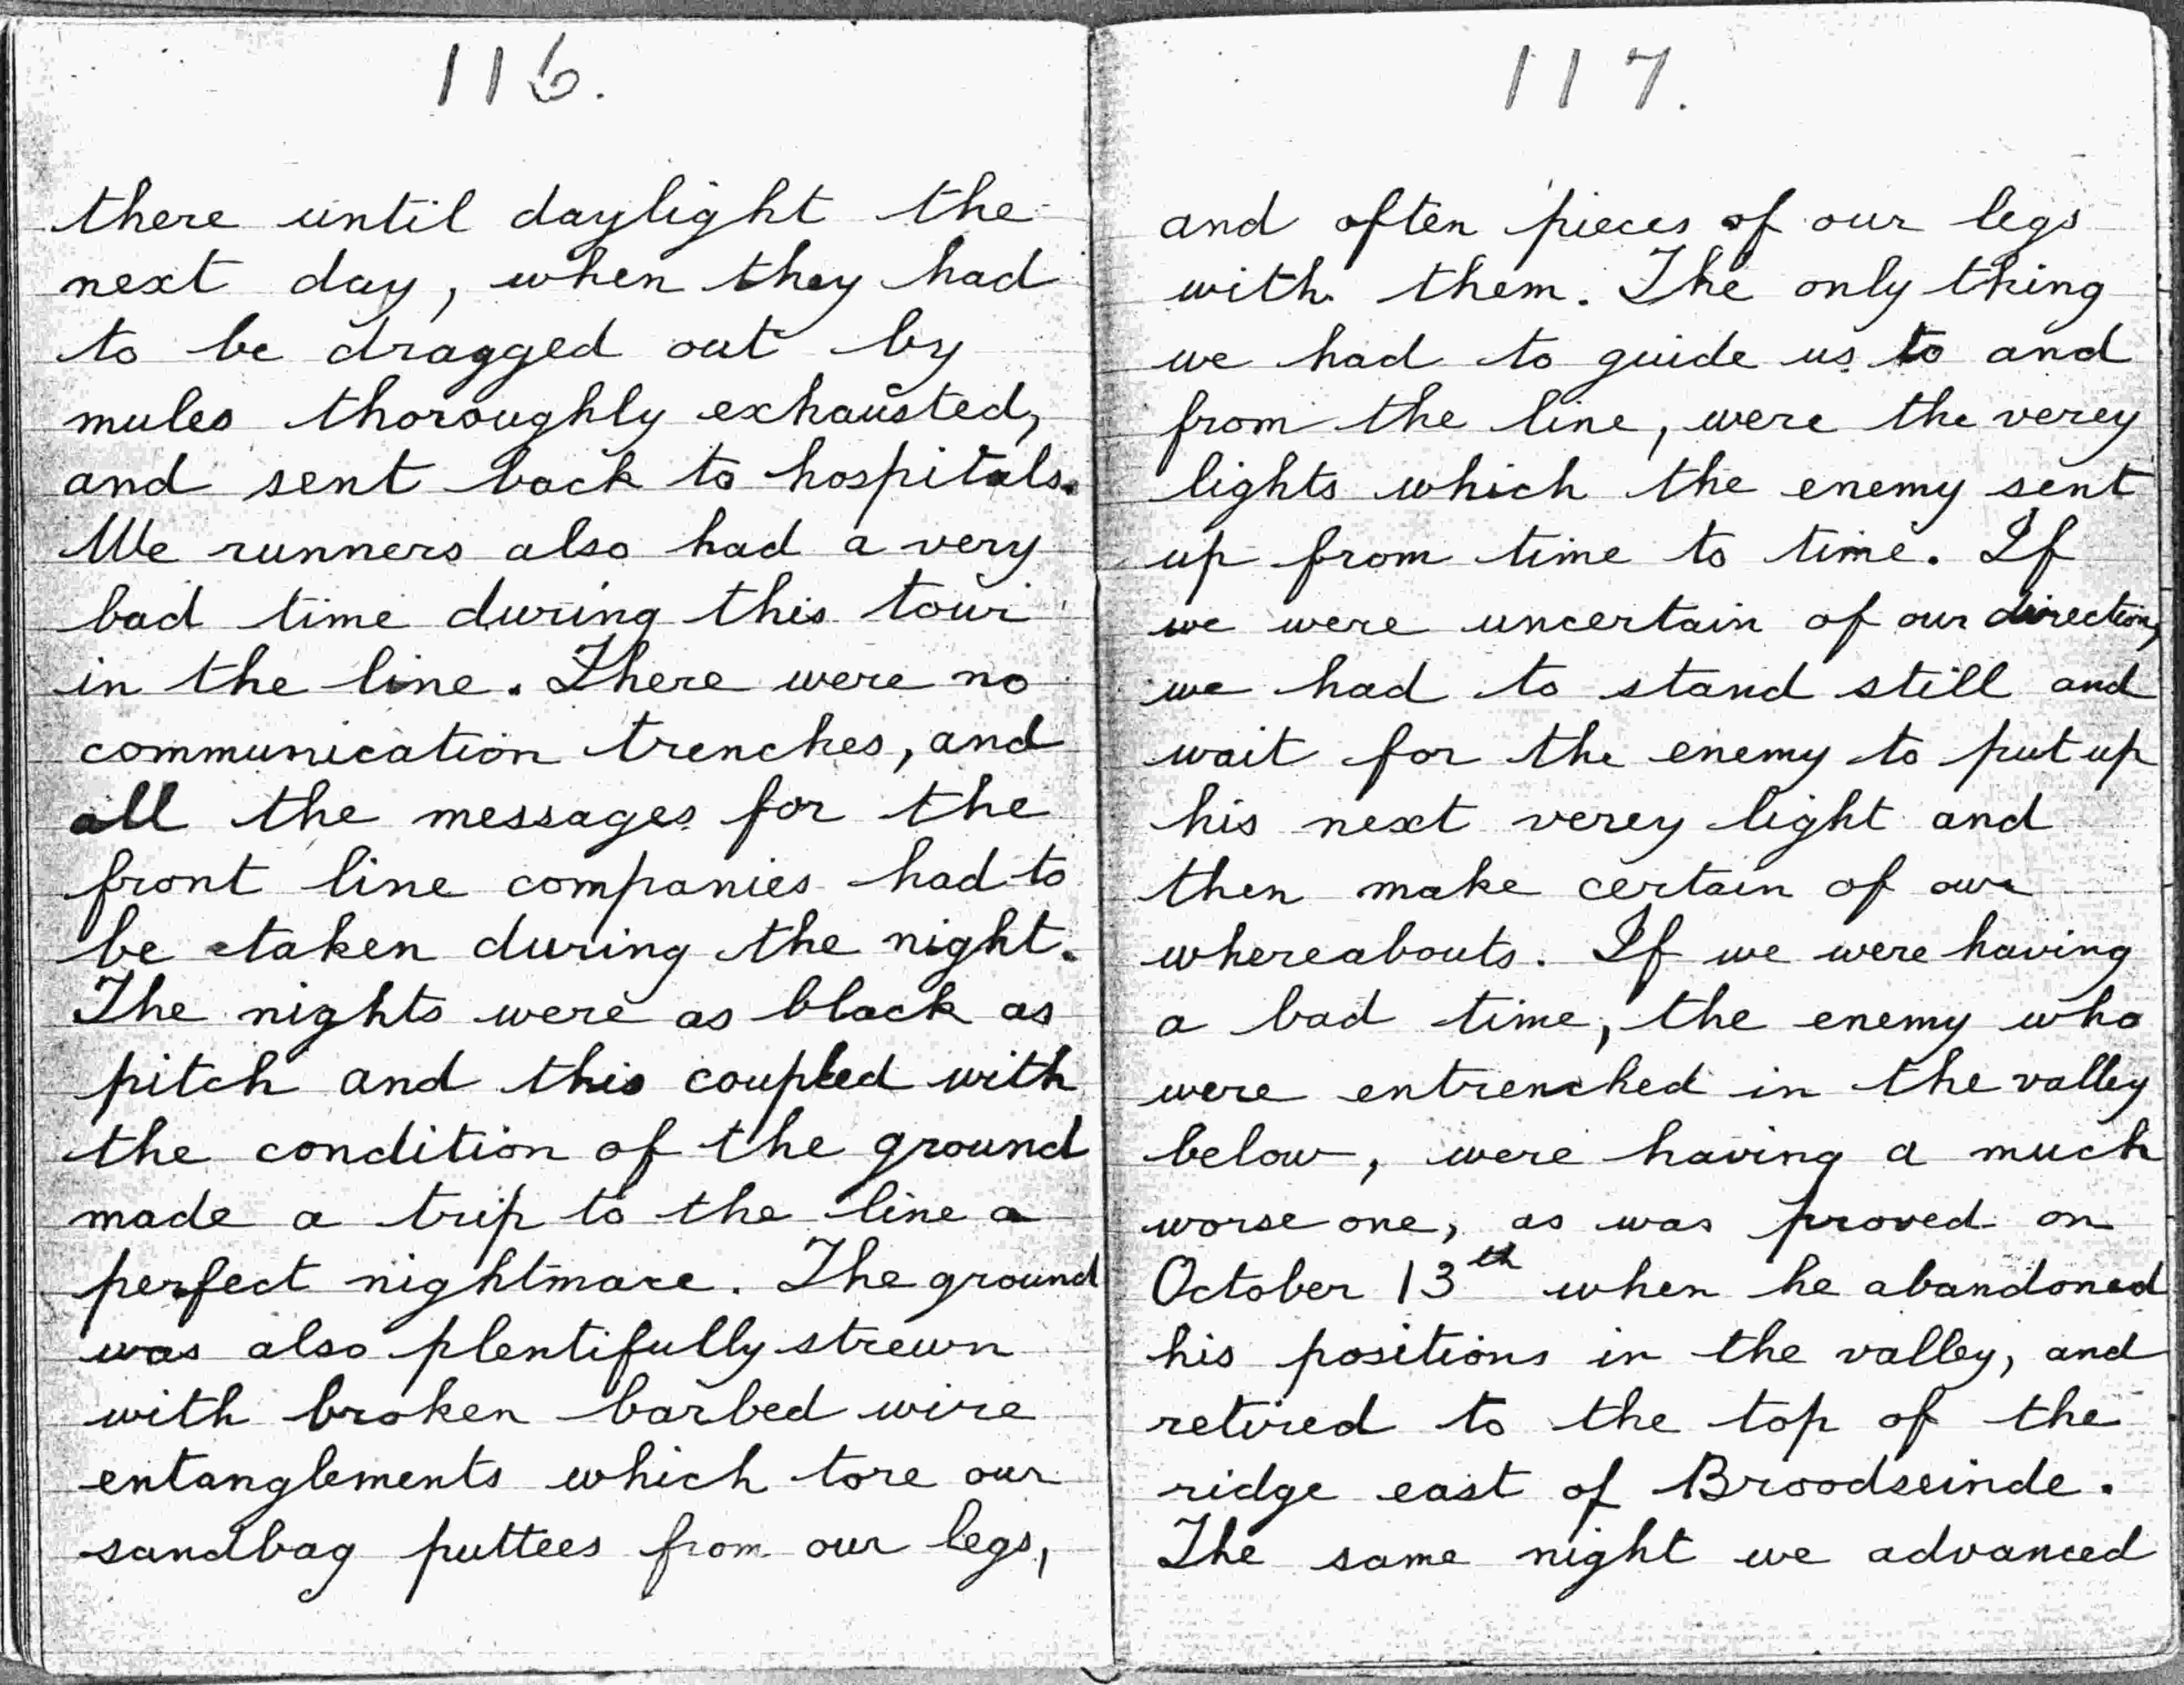 116.
there until daylight the
next day, when they had
to be dragged out by
mules thoroughly exhausted,
and sent back to hospitals.
We runners also had a very
bad time during this tour
in the line. There were no
communication trenches, and
all the messages for the
front line companies had to
be taken during the night.
The nights were as black as
pitch and this coupled with
the condition of the ground
made a trip to the line a
perfect nightmare. The ground
was also plentifully strewn
with broken barbed wire
entanglements which tore our
sandbag puttees from our legs,
117.
and often pieces of our legs
with them. The only thing
we had to guide us to and
from the line, were the verey
lights which the enemy sent
up from time to time. If
we were uncertain of our direction,
we had to stand still and
wait for the enemy to put up
his next verey light and
then make certain of our
whereabouts. If we were having
a bad time, the enemy who
were entrenched in the valley
below, were having a much
worse one, as was proved on
October 13th when he abandoned
his positions in the valley, and
retired to the top of the
ridge east of Broodseinde.
The same night we advanced